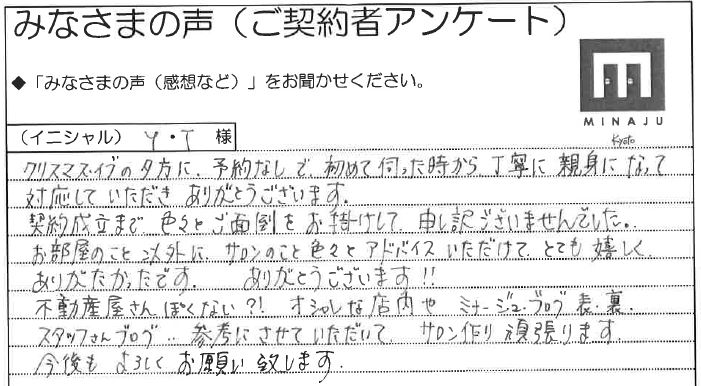 みなさまの声（ご契約者アンケート）
◆「みなさまの声（感想など）」をお聞かせください。
MINAJU
Kyoto
（イニシャル） Y・T 様
クリスマスイブの夕方に、予約なしで、初めて伺った時から丁寧に親身になって
対応していただきありがとうございます。
契約成立まで色々とご面倒をお掛けして、申し訳ございませんでした。
お部屋のこと以外に、サロンのこと色々とアドバイスいただけて、とても嬉しく、
ありがたかったです。 ありがとうございます!!
不動産屋さんぽくない?! オシャレな店内や ミナージュブログ 表・裏、
スタッフさんブログ‥ 参考にさせていただいて、サロン作り頑張ります。
今後も よろしく お願い致します。